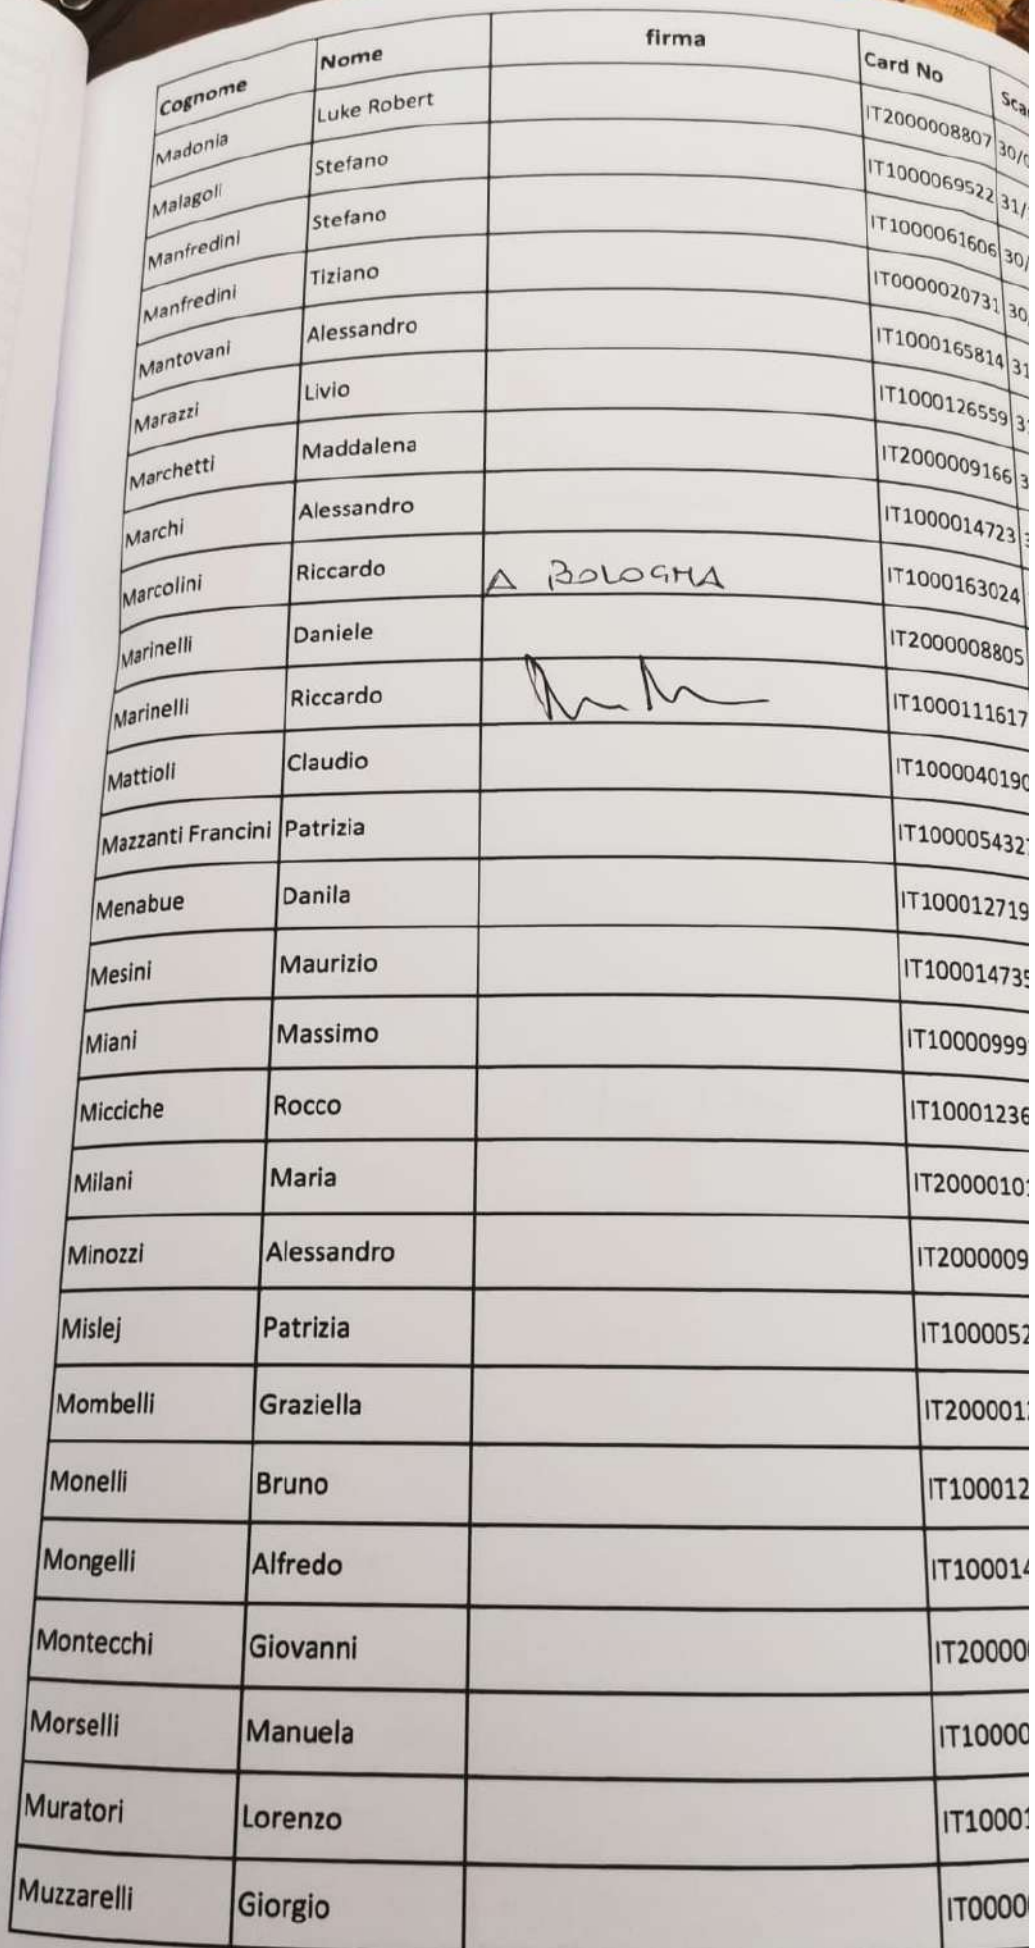 Cognome Nome firma Card No
Madonia Luke Robert IT2000008807
Malagoli Stefano IT1000069522 31/
Manfredini Stefano IT1000061606 30/
Manfredini Tiziano IT0000020731 30
Mantovani Alessandro IT1000165814 31
Marazzi Livio IT1000126559
Marchetti Maddalena IT2000009166
Marchi Alessandro IT1000014723
Marcolini Riccardo A BOLOGNA IT1000163024
Marinelli Daniele IT2000008805
Marinelli Riccardo IT1000111617
Mattioli Claudio IT1000040190
Mazzanti Francini Patrizia IT1000054327
Menabue Danila IT100012719
Mesini Maurizio IT100014735
Miani Massimo IT10000999
Micciche Rocco IT10001236
Milani Maria IT20000101
Minozzi Alessandro IT2000009
Mislej Patrizia IT1000052
Mombelli Graziella IT2000012
Monelli Bruno IT100012
Mongelli Alfredo IT100014
Montecchi Giovanni IT20000
Morselli Manuela IT10000
Muratori Lorenzo IT10001
Muzzarelli Giorgio IT00000